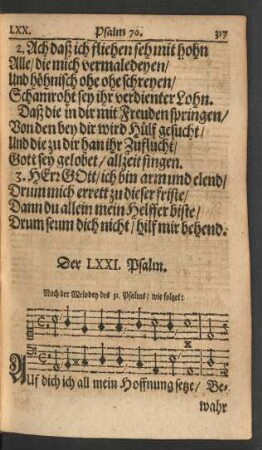 LXX. Psalm 70. 317
2. Ach daß ich fliehen seh mit hohn
Alle/ die mich vermaledeyen/
Und höhnisch ohe ohe schreyen/
Schamroht sey ihr verdienter Lohn.
Daß die in dir mit Freuden springen/
Von den bey dir wird Hülf gesucht/
Und die zu dir han ihr Zuflucht/
Gott sey gelobet/ allzeit singen.
3. HErr GOtt/ ich bin arm und elend/
Drum mich errett zu dieser friste/
Dann du allein mein Helffer biste/
Drum seum dich nicht/ hilf mir behend.
Der LXXI. Psalm.
Nach der Melodey des 31. Psalms/ wie folget:
AUf dich ich all mein Hoffnung setze/ Be-
wahr